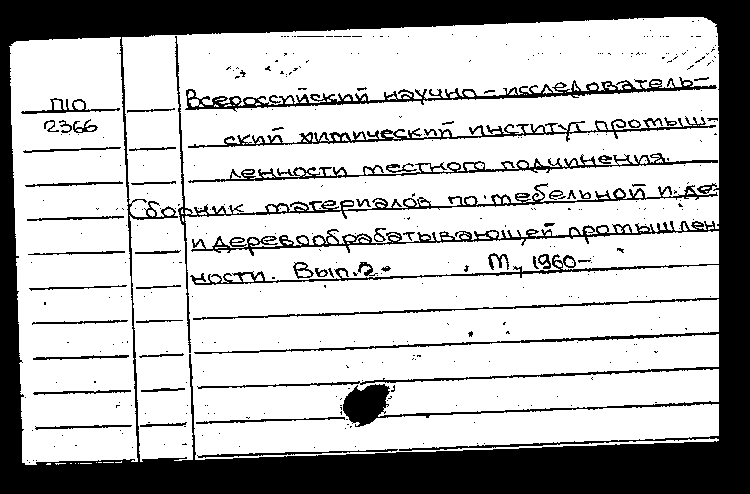 П10
2366
Всероссийский научно-исследователь-
ский химический институт промыш-
ленности местного подчинения.
Сборник материалов по мебельной и де-
и деревообрабатывающей промышлен-
ности. Вып. 2- М., 1960-